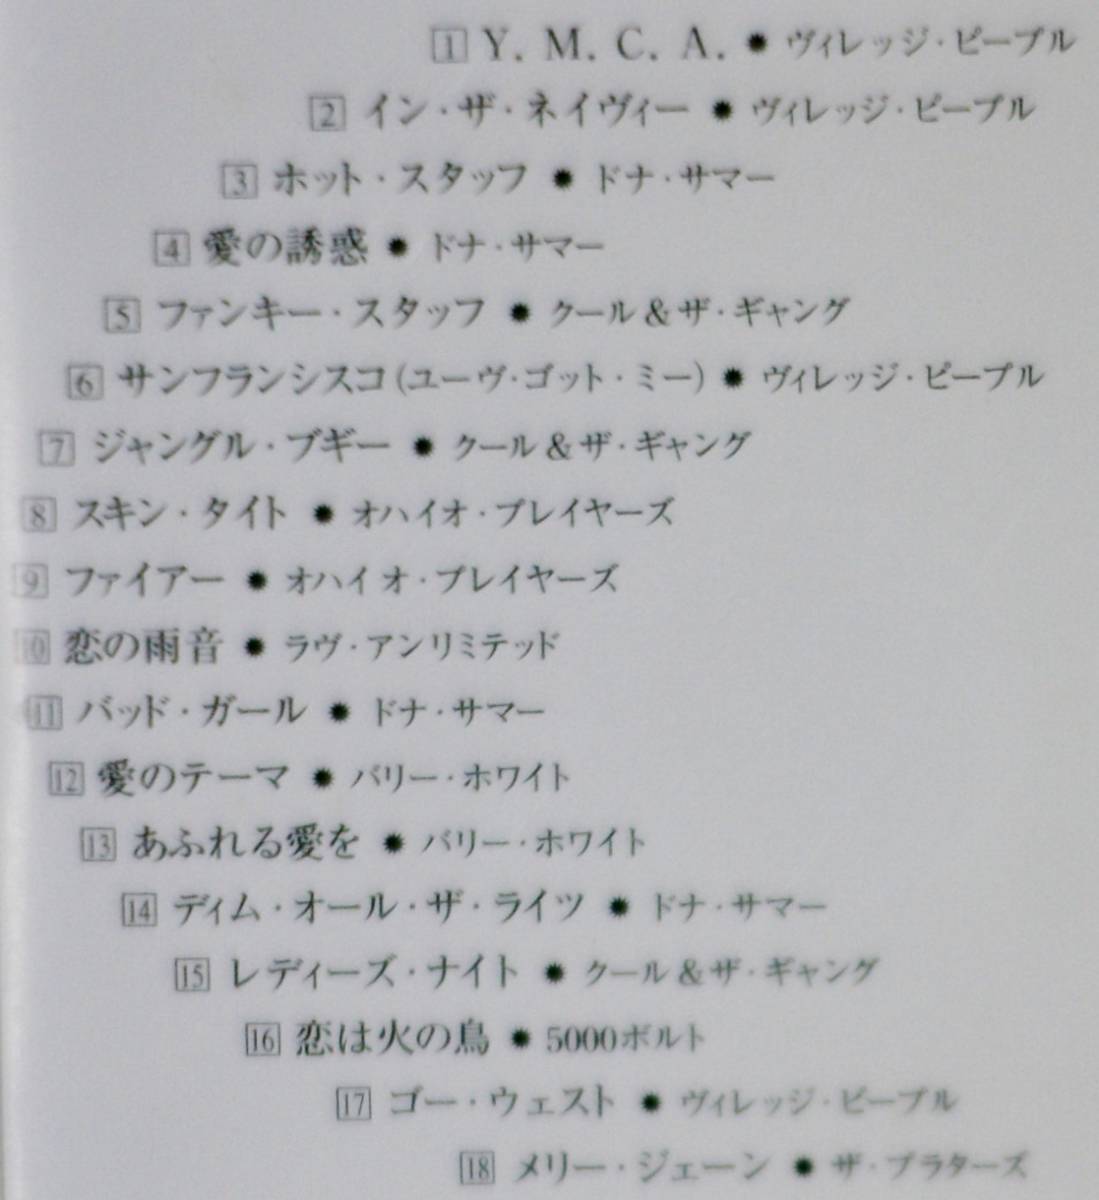 1 Y. M. C. A. ● ヴィレッジ・ピープル
2 イン・ザ・ネイヴィー ● ヴィレッジ・ピープル
3 ホット・スタッフ ● ドナ・サマー
4 愛の誘惑 ● ドナ・サマー
5 ファンキー・スタッフ ● クール&ザ・ギャング
6 サンフランシスコ(ユーヴ・ゴット・ミー) ● ヴィレッジ・ピープル
7 ジャングル・ブギー ● クール&ザ・ギャング
8 スキン・タイト ● オハイオ・プレイヤーズ
9 ファイアー ● オハイオ・プレイヤーズ
10 恋の雨音 ● ラヴ・アンリミテッド
11 バッド・ガール ● ドナ・サマー
12 愛のテーマ ● バリー・ホワイト
13 あふれる愛を ● バリー・ホワイト
14 ディム・オール・ザ・ライツ ● ドナ・サマー
15 レディーズ・ナイト ● クール&ザ・ギャング
16 恋は火の鳥 ● 5000ボルト
17 ゴー・ウェスト ● ヴィレッジ・ピープル
18 メリー・ジェーン ● ザ・プラターズ